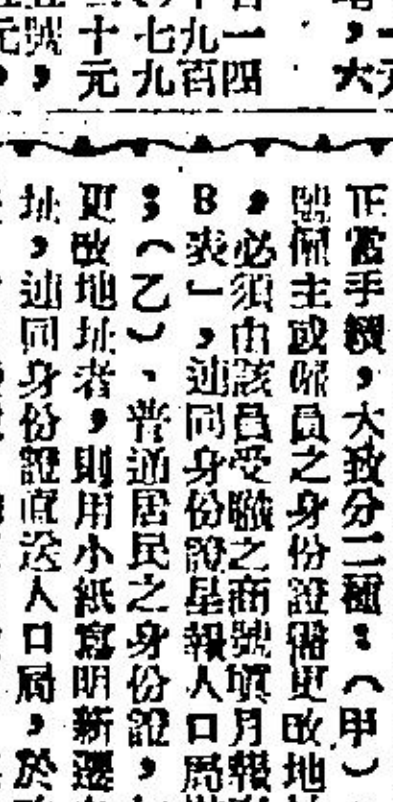 一四
九百
七九
十元
號
元
大
正當手續，大致分二種：（甲）
僱主或僱員之身份證需更改地
，必須由該員受職之商號填月報
B表」，連同身份證呈報人口局
；（乙）、普通居民之身份證，
更改地址者，則用小紙寫明新遷
址，連同身份證直送人口局，於